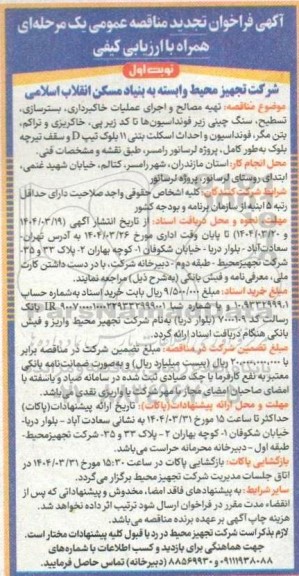 آگهی فراخوان تجدید مناقصه عمومی یک مرحله‌ای
همراه با ارزیابی کیفی
نوبت اول
شرکت تجهیز محیط وابسته به بنیاد مسکن انقلاب اسلامی
موضوع مناقصه: تهیه مصالح و اجرای عملیات خاکبرداری، بسترسازی،
تسطیح، سنگ چینی زیر فونداسیون‌ها تا کد زیر پی، خاکریزی و تراکم،
بتن مگر، فونداسیون و احداث اسکلت بتنی ۱۱ بلوک تیپ D و سقف تیرچه
بلوک به‌طور کامل، پروژه لرسانور رامسر، طبق نقشه و مشخصات فنی.
محل انجام کار: استان مازندران، شهر رامسر، کتالم، خیابان شهید غنمی،
ابتدای روستای لرسانور، پروژه لرسانور
شرایط شرکت کنندگان: کلیه اشخاص حقوقی واجد صلاحیت دارای حداقل
رتبه ۵ ابنیه از سازمان برنامه و بودجه کشور
مهلت، نحوه و محل دریافت اسناد: از تاریخ انتشار آگهی (۱۴۰۴/۰۳/۱۹
و ۱۴۰۴/۰۳/۲۰) تا پایان وقت اداری مورخ ۱۴۰۴/۰۳/۲۶ به آدرس تهران-
سعادت‌آباد - بلوار دریا - خیابان شکوفان ۱- کوچه بهاران ۲- پلاک ۳۳ و ۳۵-
شرکت تجهیز محیط - طبقه دوم - دبیرخانه شرکت، با در دست داشتن کارت
ملی، معرفی‌نامه و فیش بانکی (به شرح ذیل) مراجعه نمایند.
مبلغ خرید اسناد: مبلغ ۹/۵۰۰/۰۰۰ ریال بابت خرید اسناد به‌شماره حساب
بانک
کد ۷۰۰۱۰۹ (بلوار دریا) به‌نام شرکت تجهیز محیط واریز و فیش
بانکی هنگام دریافت اسناد ارائه گردد.
مبلغ تضمین شرکت در مناقصه: مبلغ تضمین شرکت در مناقصه برابر
با ۲۰،۰۰۰،۰۰۰،۰۰۰ ریال (بیست میلیارد ریال) و به‌صورت ضمانت‌نامه بانکی
معتبر به نفع کارفرما یا چک صیادی ثبت شده در سامانه صیاد و یاسنفته با
امضای صاحبان امضای مجاز بانام شرکت یا واریزی نقدی باشد.
مهلت و محل ارائه پیشنهادات(پاکات): تاریخ ارائه پیشنهادات(پاکات)
حداکثر تا ساعت ۱۵ مورخ ۱۴۰۴/۰۳/۳۱ به نشانی سعادت آباد - بلوار دریا-
خیابان شکوفان ۱- کوچه بهاران ۲ - پلاک ۳۳ و ۳۵- شرکت تجهیز محیط-
طبقه اول - دبیرخانه محرمانه حراست می‌باشد.
بازگشایی پاکات: بازگشایی پاکات در ساعت ۱۵:۳۰ مورخ ۱۴۰۴/۰۳/۳۱ در
اتاق جلسات مدیریت شرکت تجهیز محیط برگزار می‌گردد.
سایر شرایط: به پیشنهادهای فاقد امضا، مخدوش و پیشنهاداتی که پس از
انقضاء مدت مقرر در فراخوان ارسال شود ترتیب اثر داده نخواهد شد.
هزینه چاپ آگهی بر عهده برنده مناقصه می‌باشد.
لازم بذکر است شرکت تجهیز محیط در رد یا قبول کلیه پیشنهادات مختار است.
جهت هماهنگی برای بازدید و کسب اطلاعات با شماره‌های
۰۹۱۱۱۹۳۸۰۸۸ و ۸۸۵۶۹۹۳۰ (دبیرخانه) تماس حاصل فرمایید.